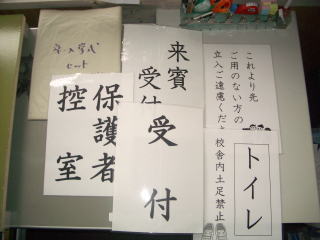 卒入学式
セット
来賓
受付
これより先
ご用のない方の
立入ご遠慮くだ
保護者
控室
受付
トイレ
校舎内土足禁止